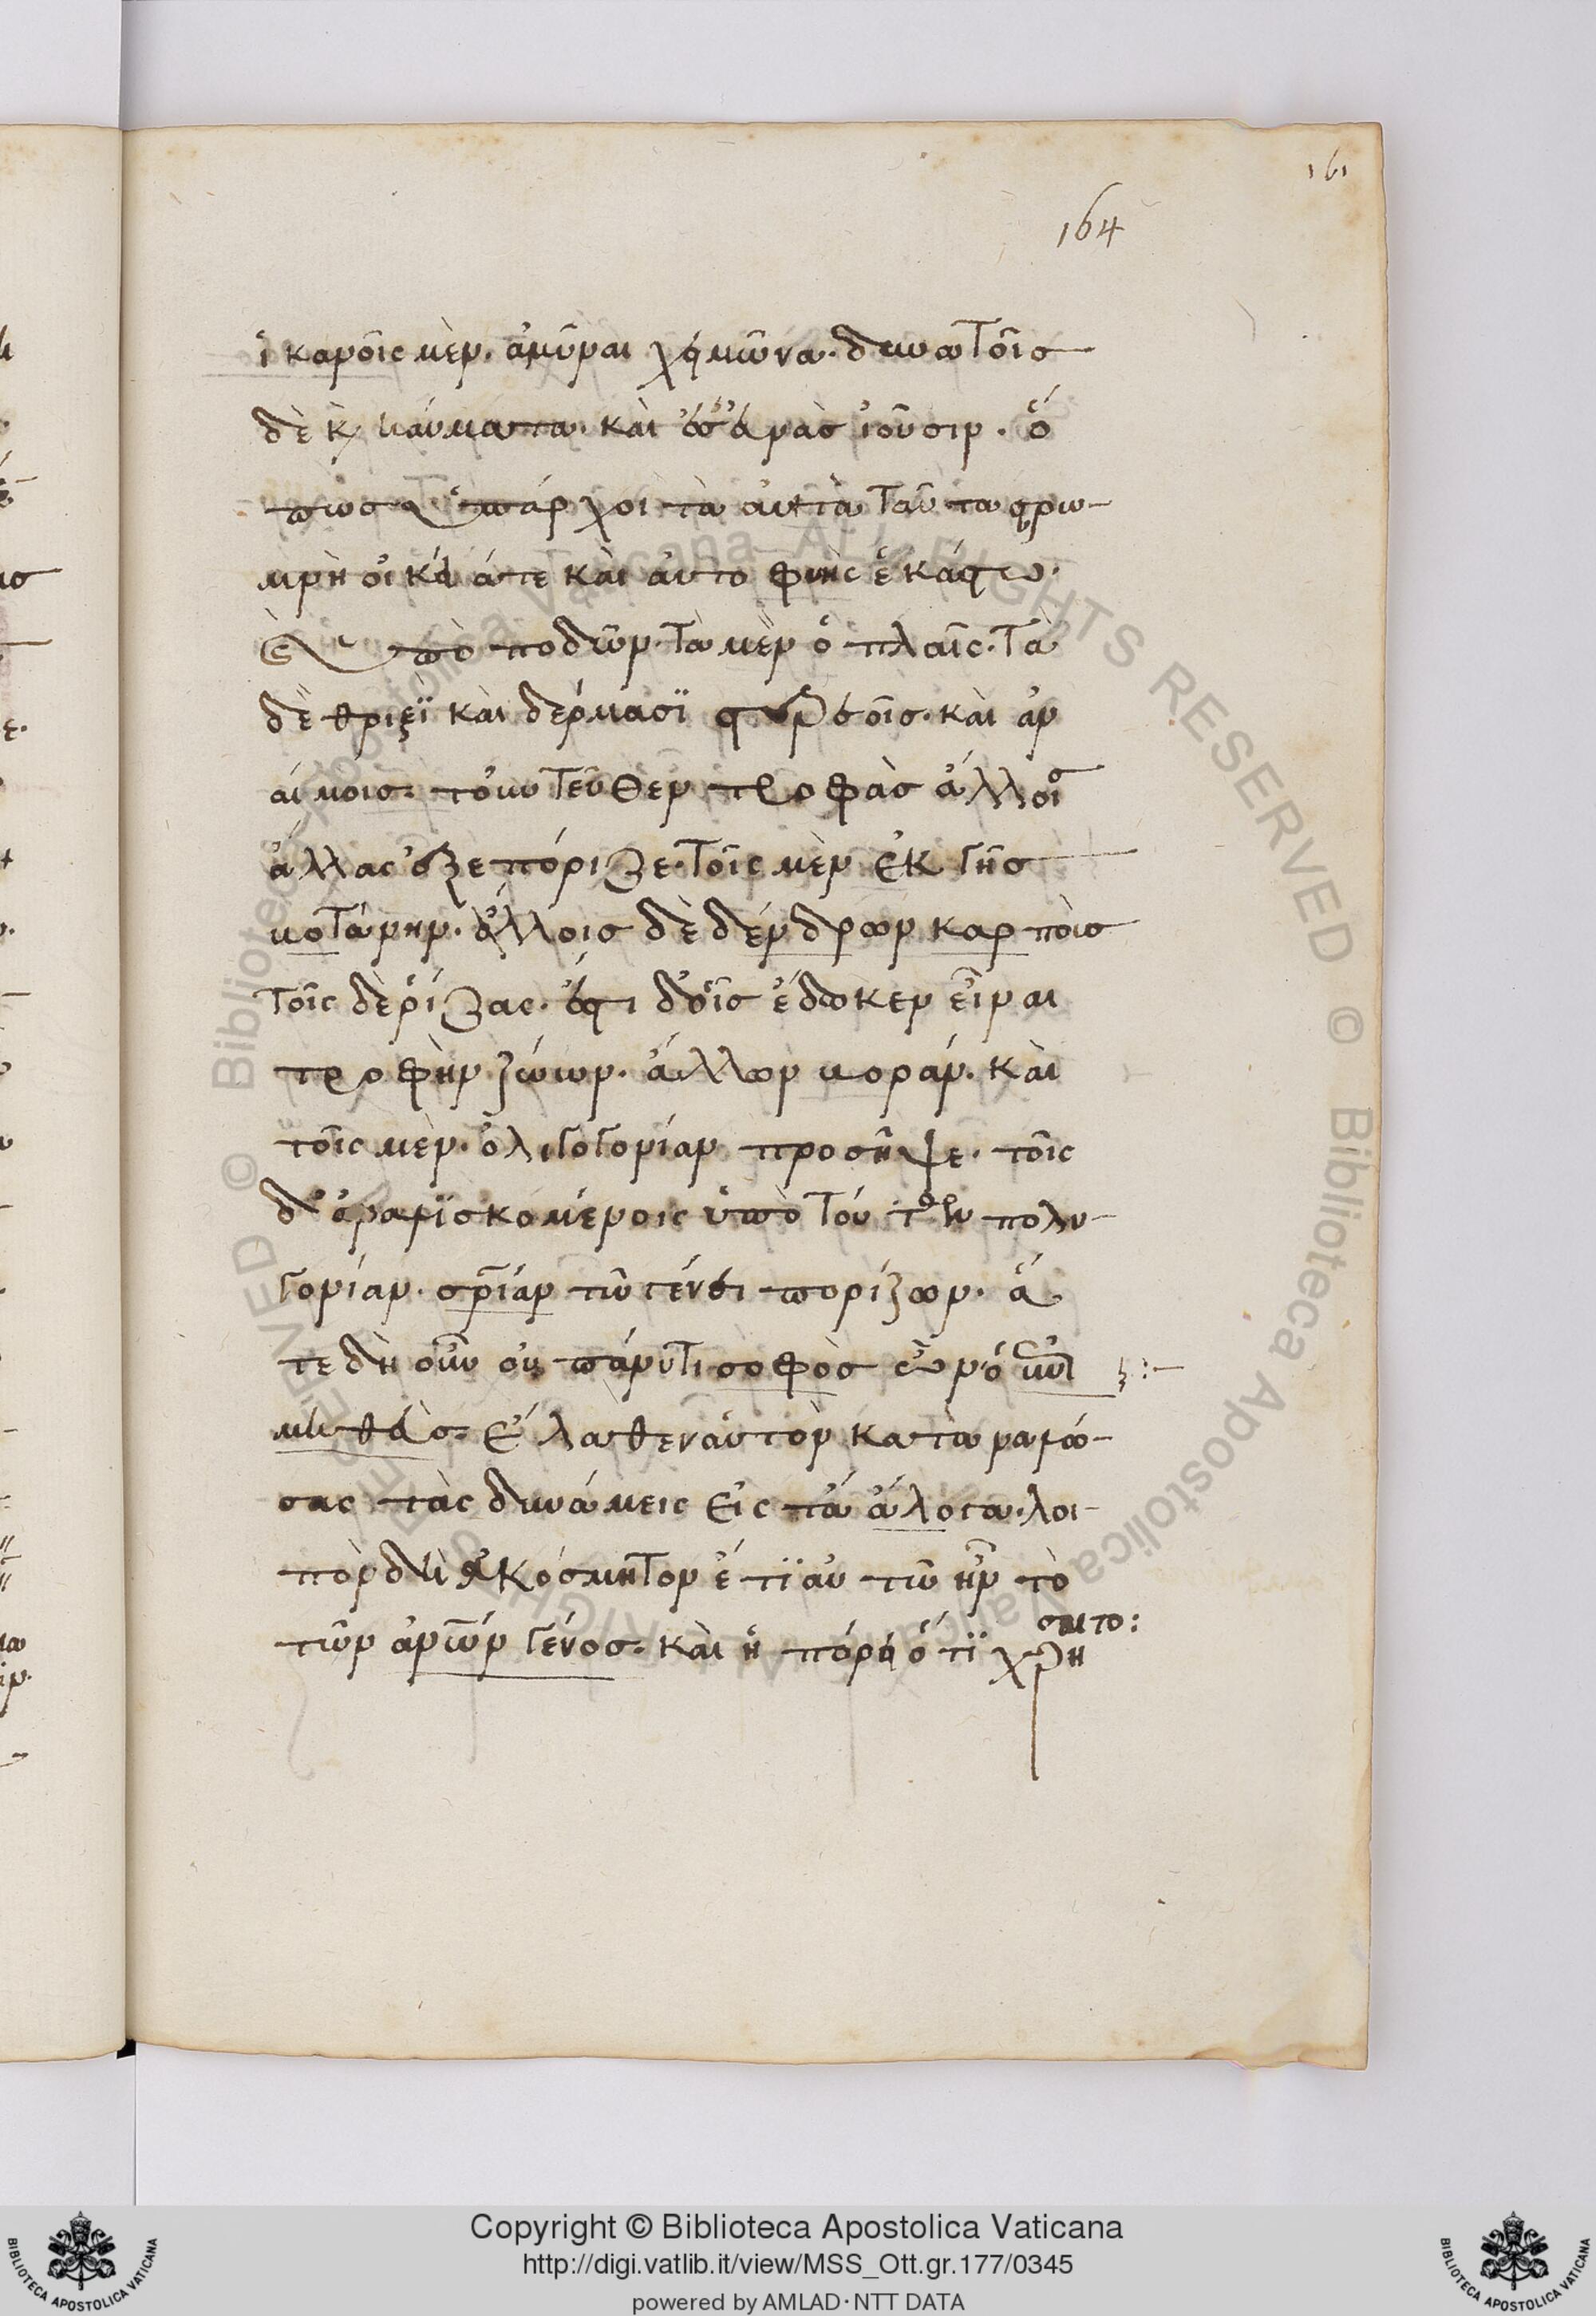 161
164
ἱκανοῖς μὲν. ἀμῦναι χειμῶνα. δυνατοῖς
δὲ κ καύματα. καὶ εἰς εὐνὰς ἰοῦσιν. ὅ
πως ὑπάρχοι τὰ αὐτὰ ταῦτα στρω-
μνὴ οἰκεία τε καὶ αὐτοφυὴς ἑκάστω.
ὑπὸ ποδῶν. τὰ μὲν ὁπλαῖς. τὰ
δὲ θριξὶ καὶ δέρμασι στερεοῖς. καὶ ἀν
αίμοις. τοὐντεῦθεν τροφὰς ἄλλοις
ἄλλας ἐξεπόριζε. τοῖς μὲν ἐκ γῆς
βοτάνην. ἄλλοις δὲ δένδρων καρποὺς
τοῖς δὲ ῥίζας. ἔστι δ' οἷς ἔδωκεν εἶναι
τροφὴν ζώων. ἄλλων βοράν. καὶ
τοῖς μὲν. ὀλιγογονίαν προσῆψε. τοῖς
δ' ἀναλισκομένοις ὑπὸ τούτων πολυ-
γονίαν. σωτηρίαν τῶ γένει πορίζων. ἅ
τε δὴ οὖν οὐ πάνυ τι σοφὸς ὢν ὁ ἐπι
μηθεὺς. ἔλαθεν αὑτὸν καταναλώ-
σας τὰς δυνάμεις εἰς τὰ ἄλογα. λοι-
πὸν δὴ ἀκόσμητον ἔτι αὐτῶ ἦν τὸ
τῶν ἀνων γένος. καὶ ἠπόρει ὅτι χρή
σαιτο:
Copyright © Biblioteca Apostolica Vaticana
http://digi.vatlib.it/view/MSS_Ott.gr.177/0345
powered by AMLAD·NTT DATA